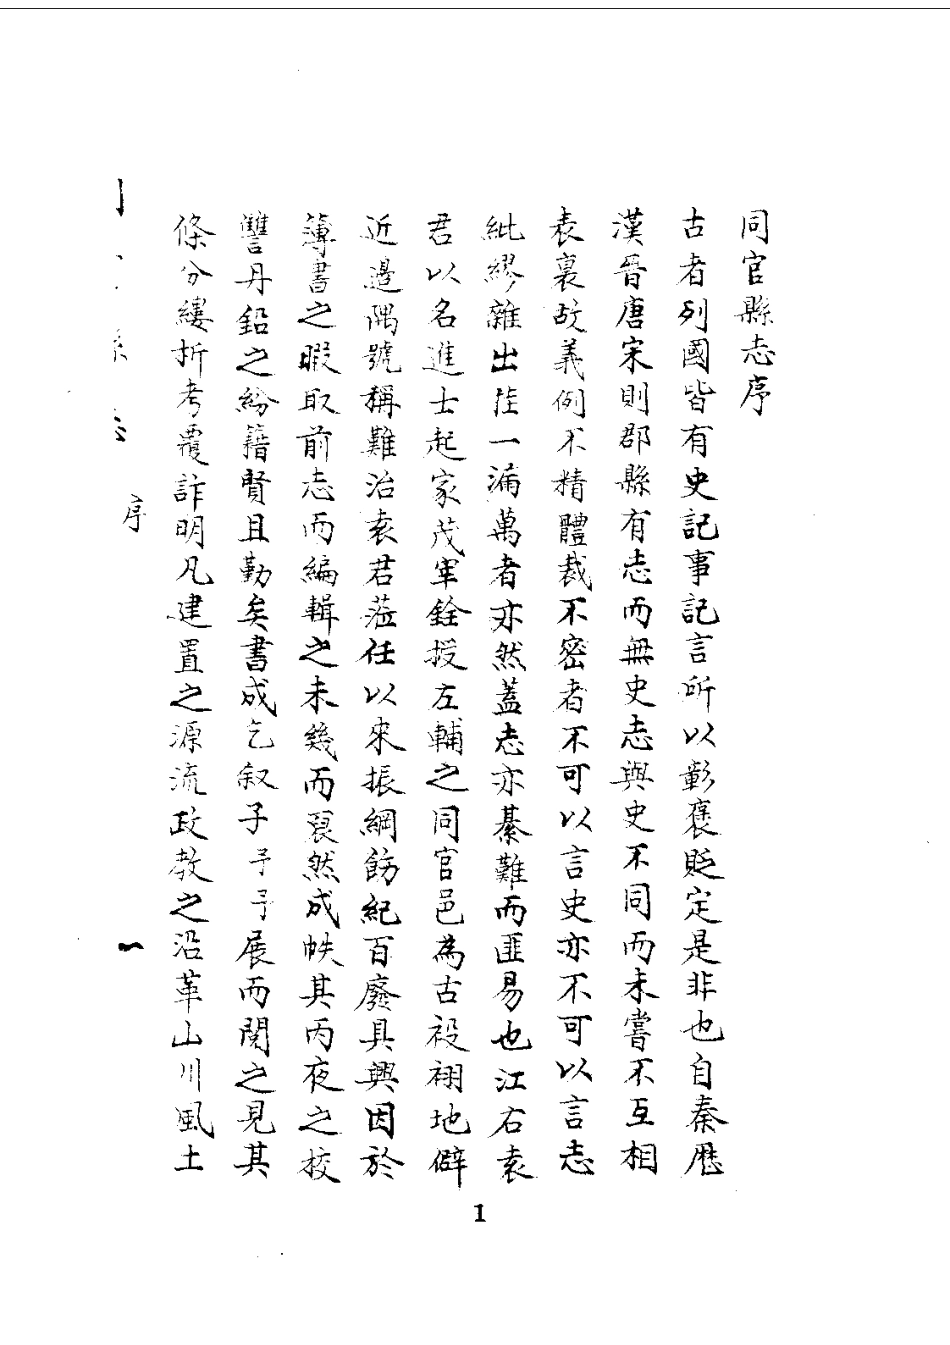 同官縣志序
古者列國皆有史記事記言所以彰襃貶定是非也自秦歷
漢晉唐宋則郡縣有志而無史志與史不同而未嘗不互相
表裏故義例不精體裁不密者不可以言史亦不可以言志
紕繆雜出陸一漏萬者亦然蓋志亦綦難而匪易也江右袁
君以名進士起家茂軍銓授左輔之同官邑為古祋祤地僻
近邊隅號稱難治袁君蒞任以來振綱飭紀百廢具興因於
簿書之暇取前志而編輯之未幾而裒然成帙其丙夜之校
讐丹鉛之紛籍賢且勤矣書成乞叙子予予展而閱之見其
條分縷折考覆詐明凡建置之源流政教之沿革山川風土
序
一
1